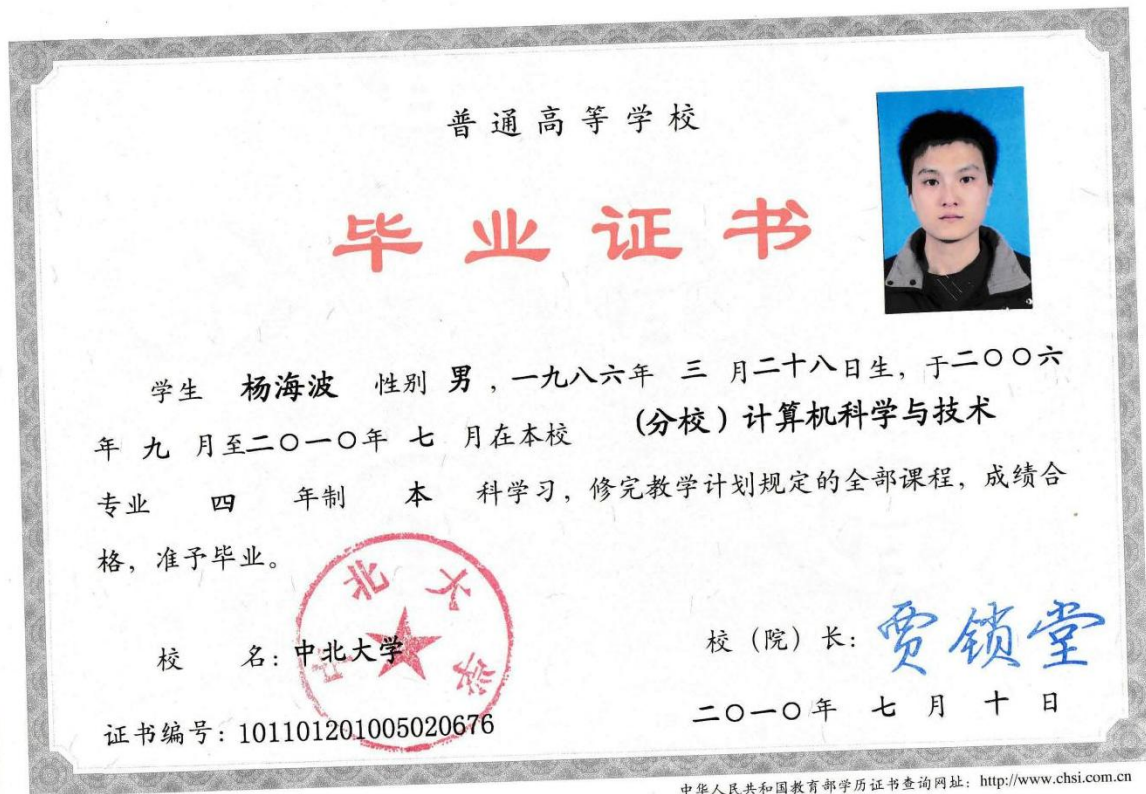 普通高等学校
毕业证书
学生 杨海波 性别 男，一九八六年 三 月二十八日生，于二〇〇六
年 九 月至二〇一〇年 七 月在本校 (分校)计算机科学与技术
专业 四 年制 本 科学习，修完教学计划规定的全部课程，成绩合
格，准予毕业。
中北大学
校 名：中北大学
校（院）长：贾锁堂
证书编号：101101201005020676
二〇一〇年 七 月 十 日
中华人民共和国教育部学历证书查询网址：http://www.chsi.com.cn